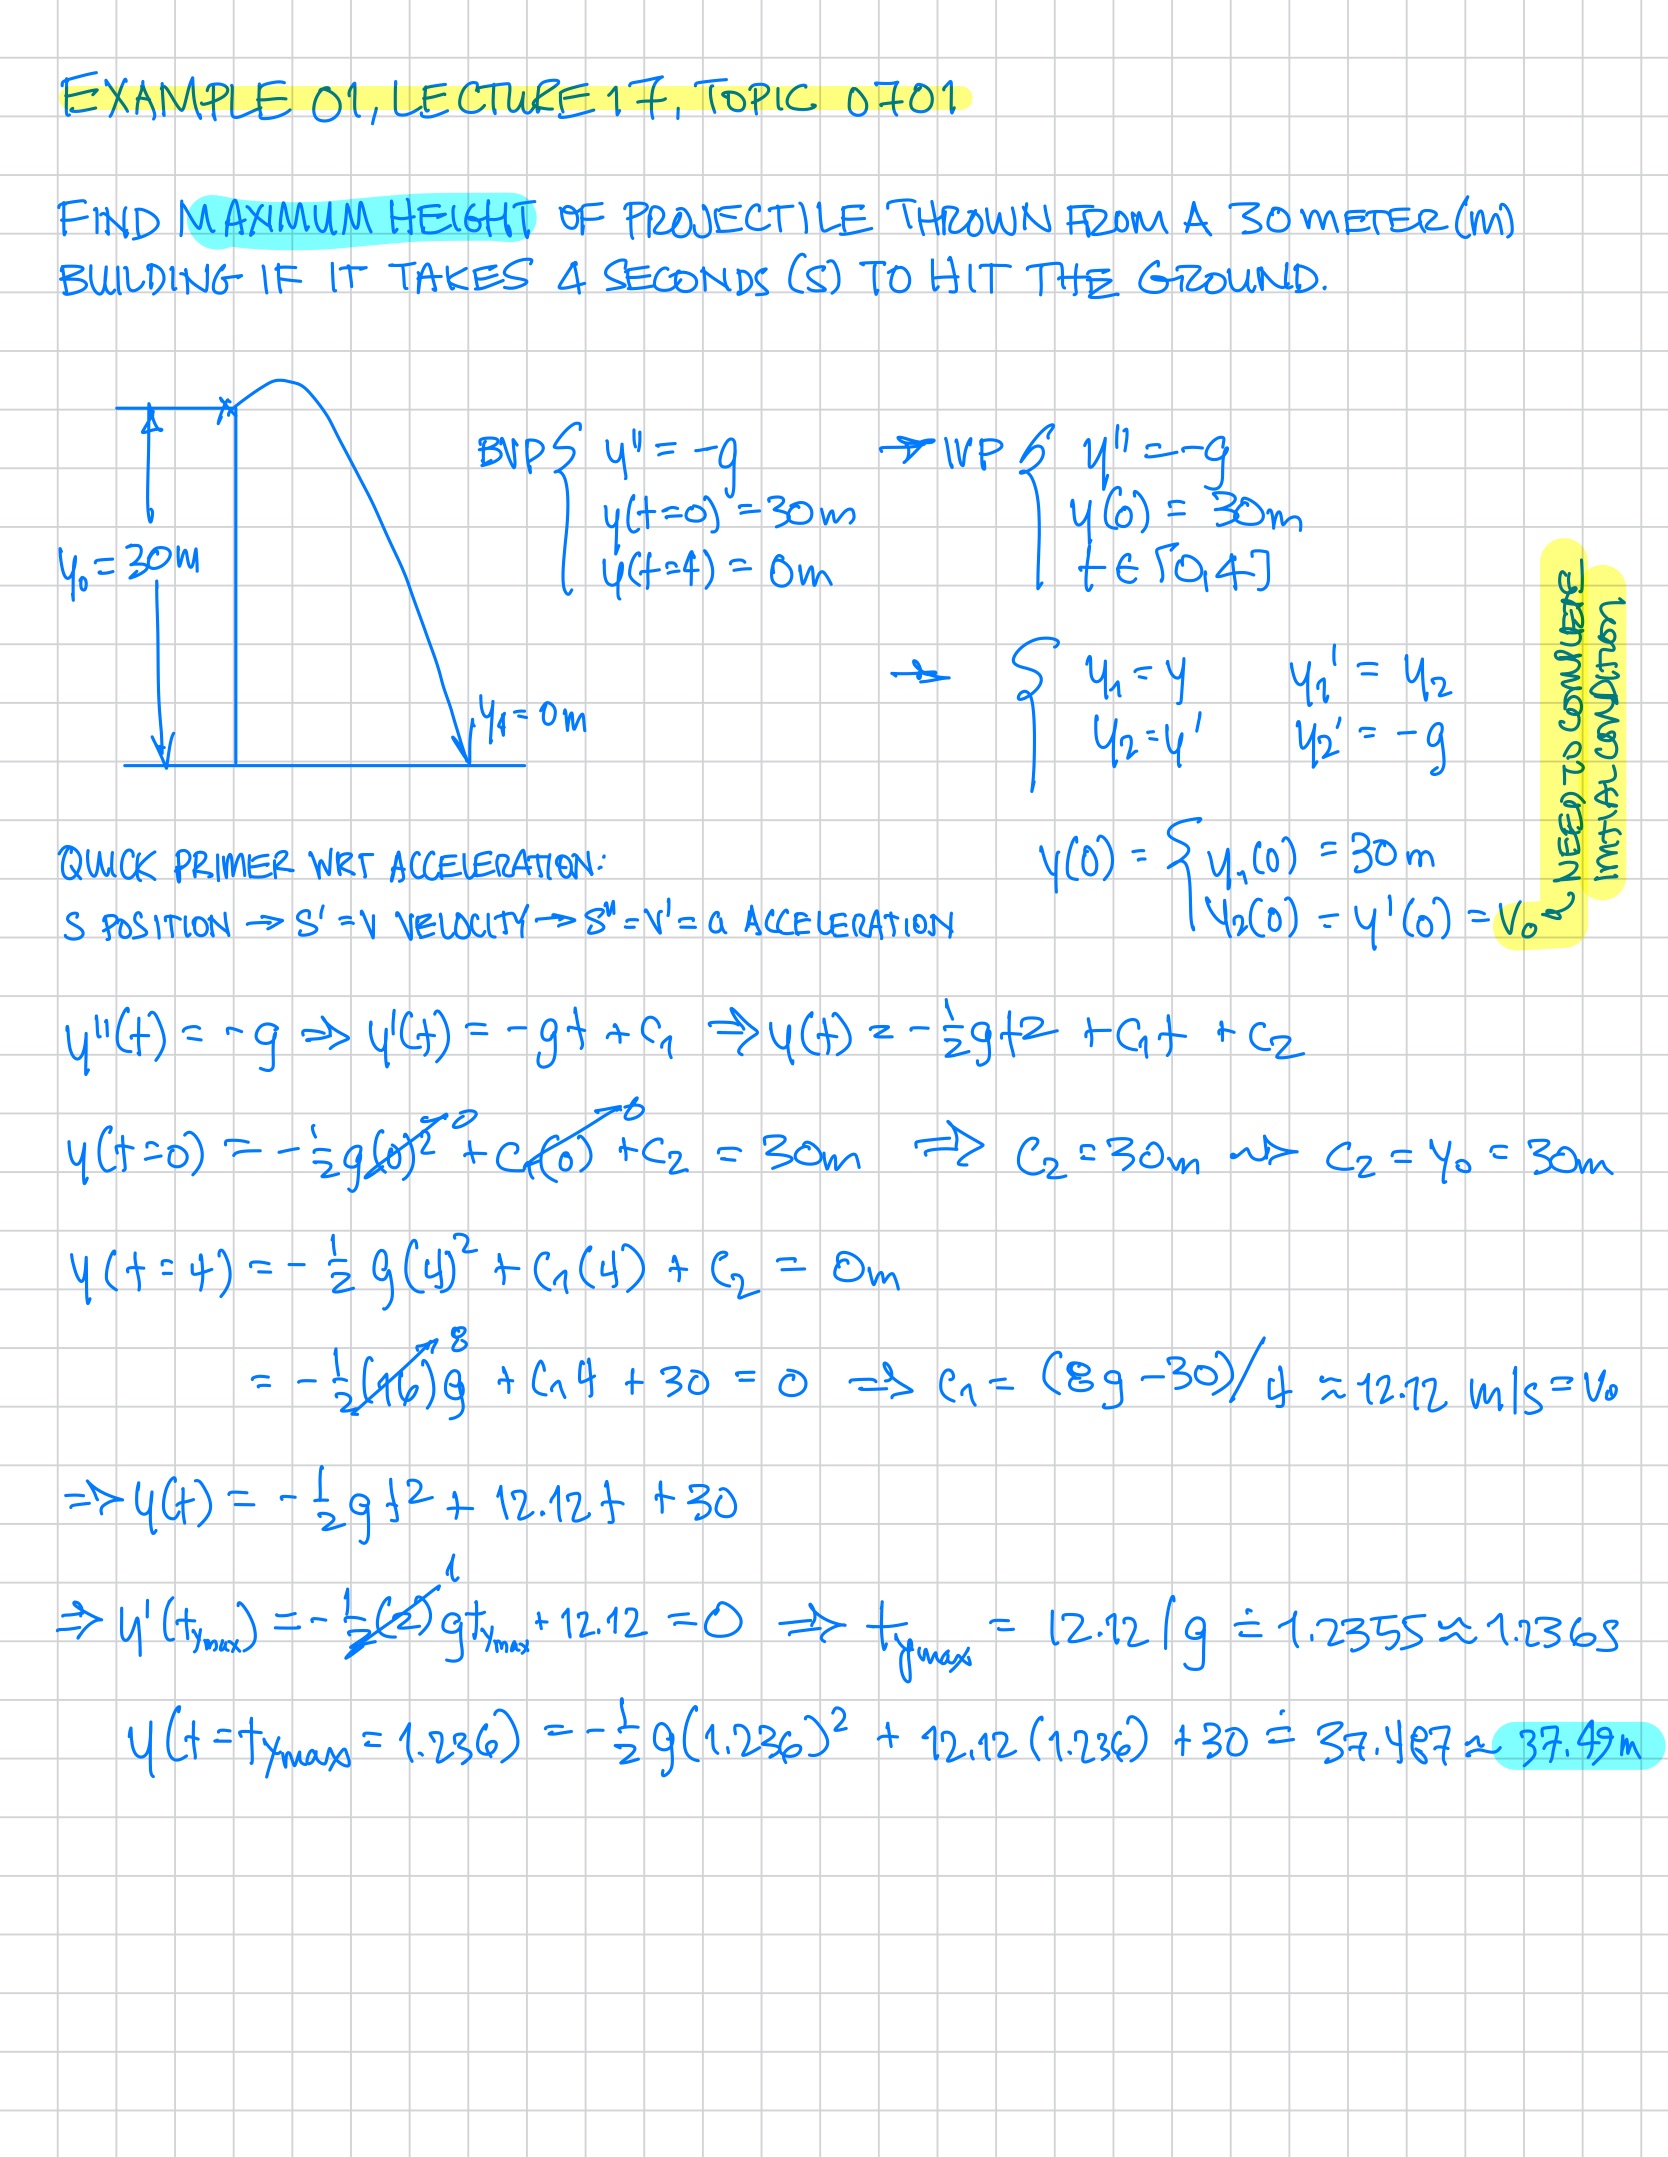 EXAMPLE 01, LECTURE 17, TOPIC 0701
FIND MAXIMUM HEIGHT OF PROJECTILE THROWN FROM A 30 METER (M)
BUILDING IF IT TAKES 4 SECONDS (S) TO HIT THE GROUND.
y₀ = 30m
y₄ = 0m
BVP { y'' = -g
y(t=0) = 30m
y(t=4) = 0m
→ IVP { y'' = -g
y(0) = 30m
t ∈ [0,4]
→ { y₁ = y y₁' = y₂
y₂ = y' y₂' = -g
y(0) = { y₁(0) = 30m
y₂(0) = y'(0) = v₀
NEED TO COMPLETE
INITIAL CONDITION
QUICK PRIMER WRT ACCELERATION:
S POSITION → S' = V VELOCITY → S'' = V' = a ACCELERATION
y''(t) = -g ⇒ y'(t) = -gt + C₁ ⇒ y(t) = -½gt² + C₁t + C₂
y(t=0) = -½g(0)²↗0 + C₁(0)↗0 + C₂ = 30m ⇒ C₂ = 30m ⇝ C₂ = y₀ = 30m
y(t=4) = -½g(4)² + C₁(4) + C₂ = 0m
= -½(16)↗8 g + C₁4 + 30 = 0 ⇒ C₁ = (8g - 30)/4 ≈ 12.12 m/s = v₀
⇒ y(t) = -½gt² + 12.12t + 30
⇒ y'(t_ymax) = -½(2)↗1 gt_ymax + 12.12 = 0 ⇒ t_ymax = 12.12/g ≐ 1.2355 ≈ 1.236s
y(t = t_ymax = 1.236) = -½g(1.236)² + 12.12(1.236) + 30 ≐ 37.487 ≈ 37.49m